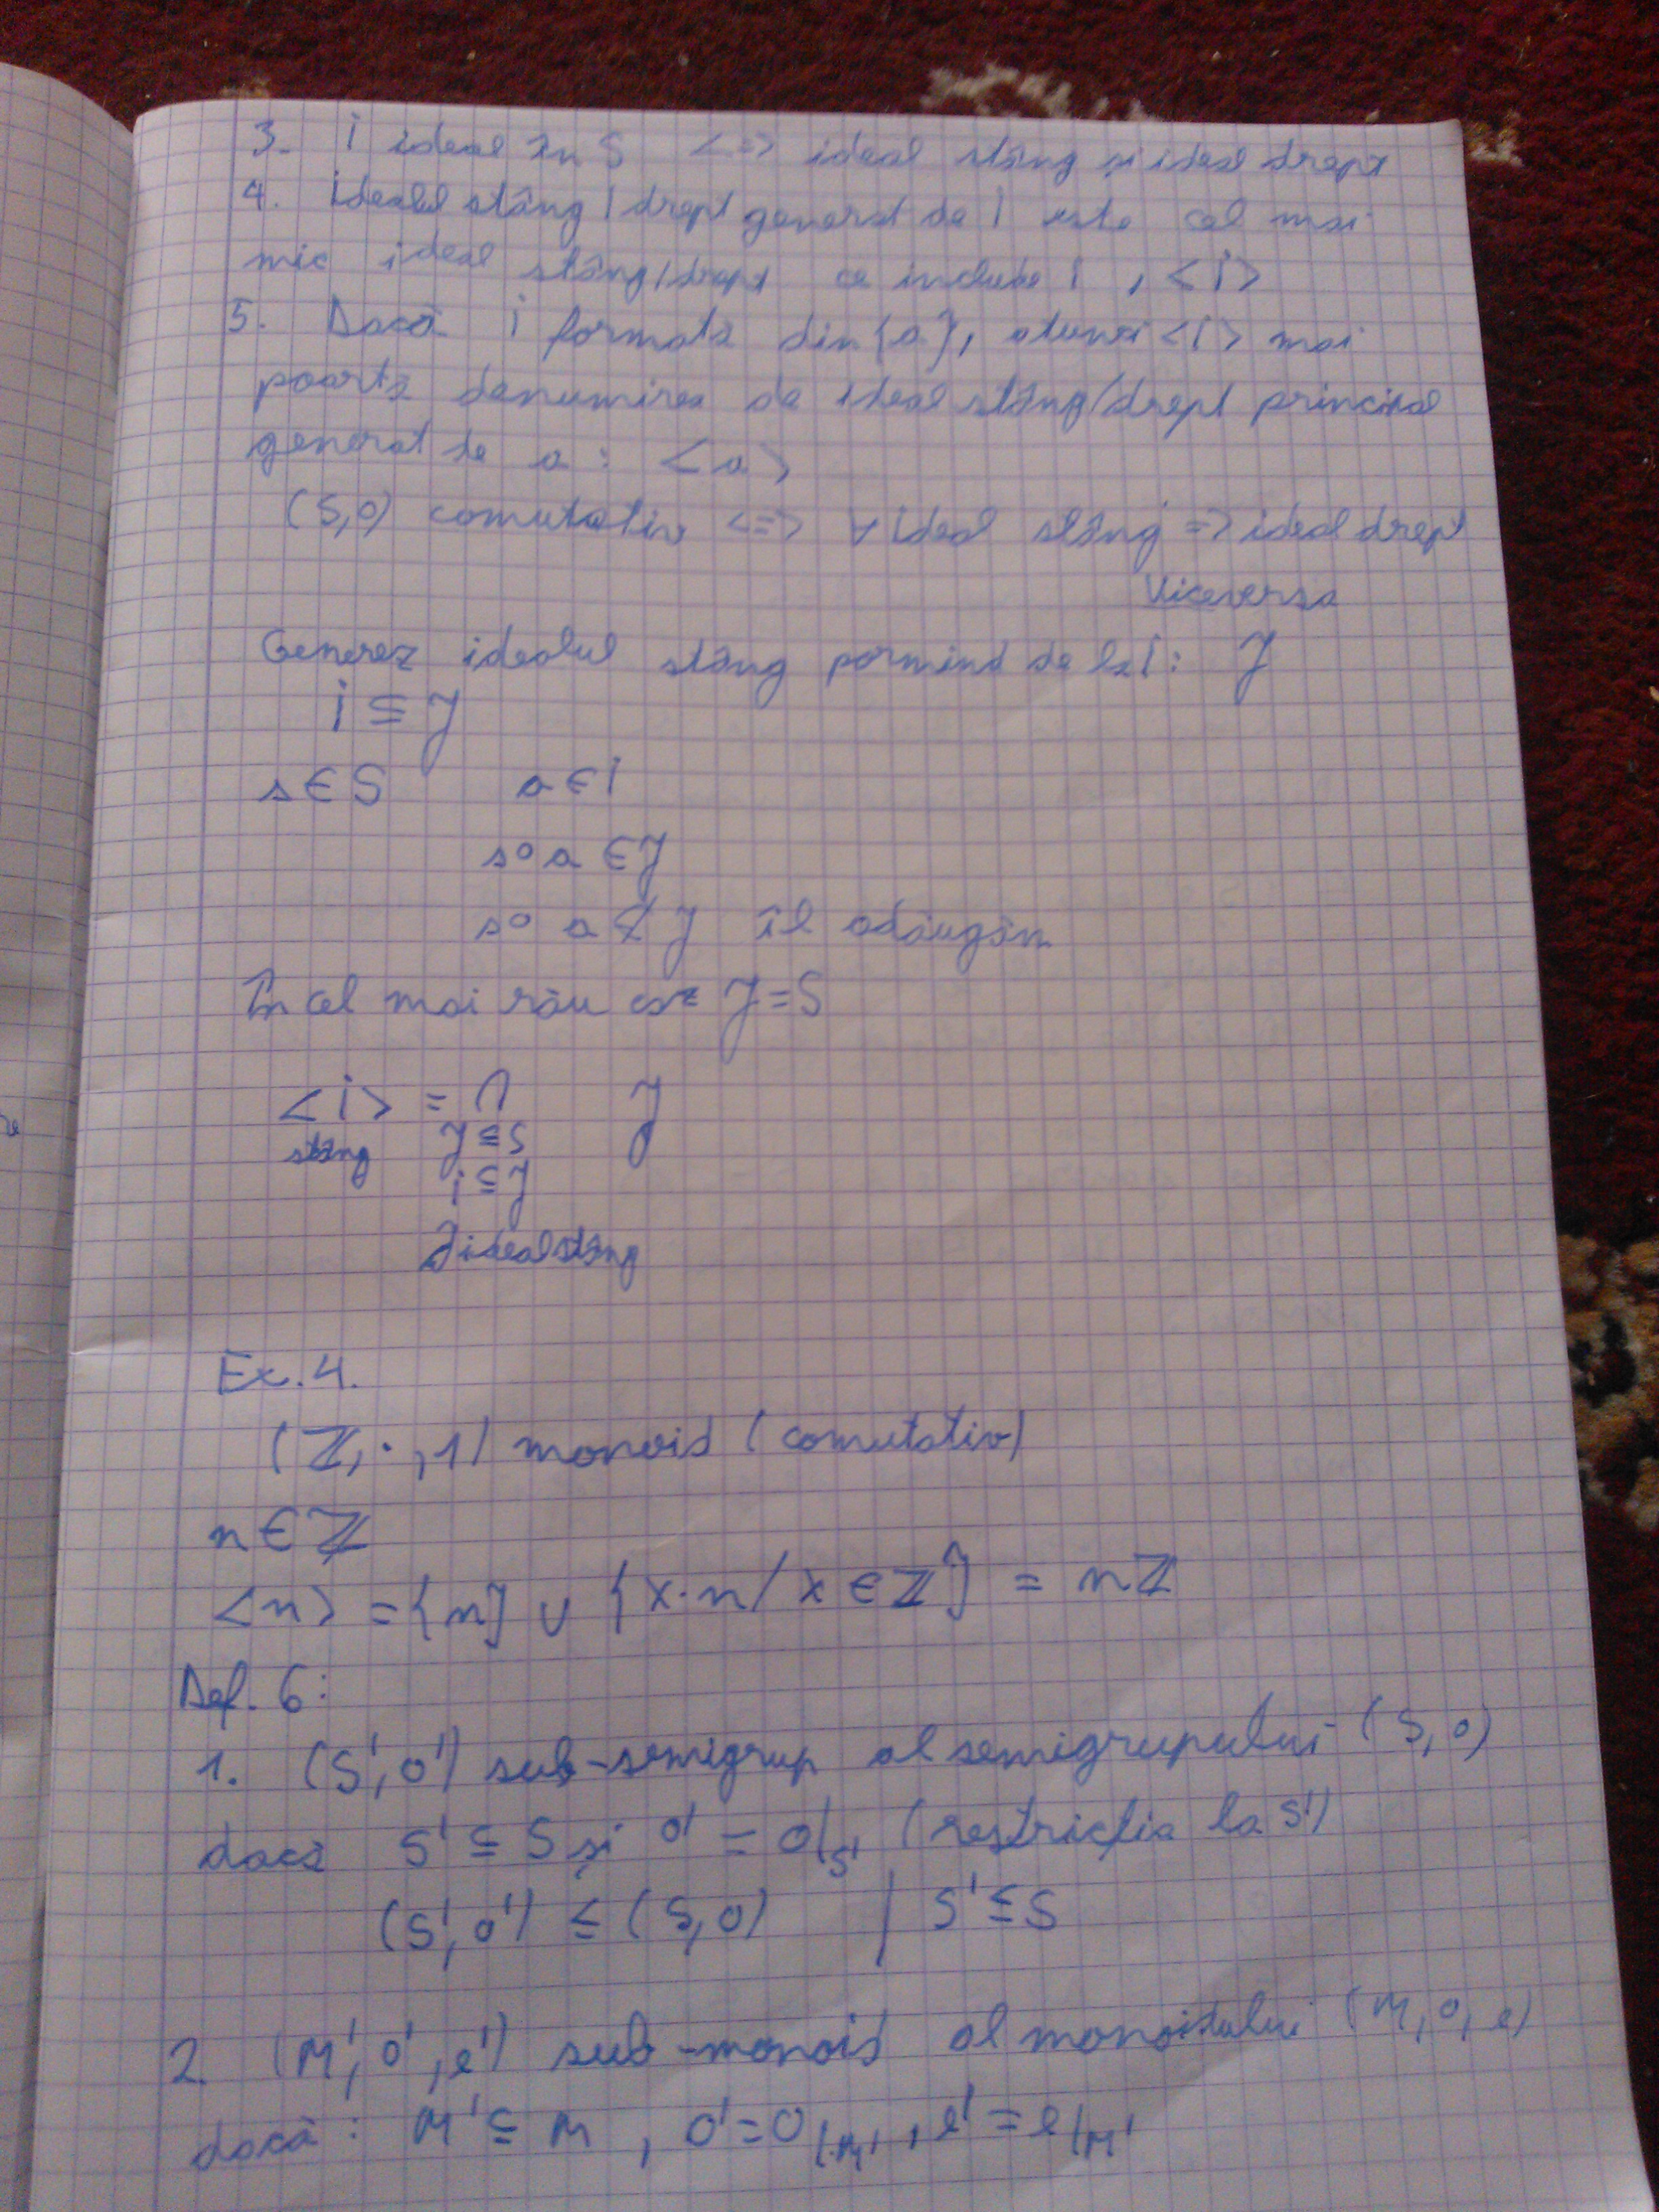 3. i ideal în S <=> ideal stâng și ideal drept
4. Idealul stâng / drept generat de i este cel mai
mic ideal stâng/drept ce include i , <i>
5. Dacă i formată din {a}, atunci <i> mai
poartă denumirea de ideal stâng/drept principal
generat de a : <a>
(S,o) comutativ <=> ∀ ideal stâng => ideal drept
Viceversa
Generez idealul stâng pornind de la i : J
i ⊆ J
s ∈ S a ∈ i
s o a ∈ J
s o a ∉ J îl adăugăm
În cel mai rău caz J = S
<i> = ∩ J
stâng J ⊆ S
i ⊆ J
J ideal stâng
Ex. 4.
(ℤ, ·, 1) monoid (comutativ)
n ∈ ℤ
<n> = {n} ∪ {x·n / x ∈ ℤ} = nℤ
Def. 6:
1. (S', o') sub-semigrup al semigrupului (S, o)
dacă S' ⊆ S și o' = o|S' (restricția la S')
(S', o') ≤ (S, o) | S' ≤ S
2. (M', o', e') sub-monoid al monoidului (M, o, e)
dacă : M' ⊆ M , o' = o|M' , e' = e|M'